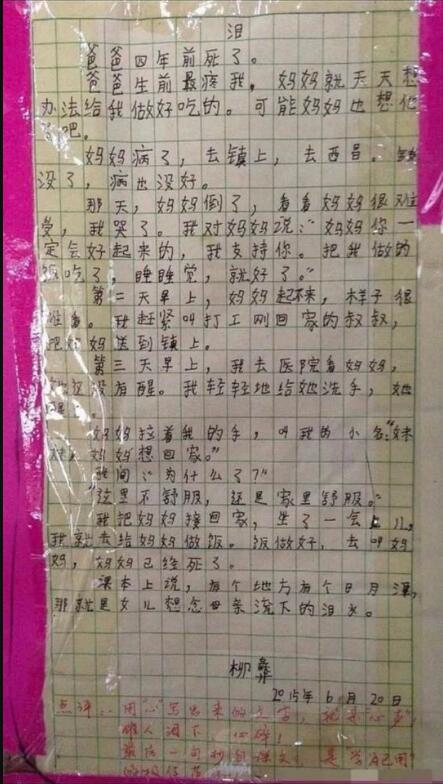 泪
爸爸四年前死了。
爸爸生前最疼我，妈妈就天天想
办法给我做好吃的。可能妈妈也想他
了吧。
妈妈病了，去镇上，去西昌。钱
没了，病也没好。
那天，妈妈倒了，看看妈妈很难
受，我哭了。我对妈妈说：“妈妈你一
定会好起来的，我支持你。把我做的
饭吃了，睡睡觉，就好了。”
第二天早上，妈妈起不来，样子很
难看。我赶紧叫打工刚回家的叔叔，
把妈妈送到镇上。
第三天早上，我去医院看妈妈，
她还没有醒。我轻轻地给她洗手，她
醒了。
妈妈拉着我的手，叫我的小名：“妹
妹，妈妈想回家。”
我问：“为什么了？”
“这里不舒服，还是家里舒服。”
我把妈妈接回家，坐了一会儿，
我就去给妈妈做饭。饭做好，去叫妈
妈，妈妈已经死了。
课本上说，有个地方有个日月潭，
那就是女儿想念母亲流下的泪水。
柳彝
2015年6月20日
点评：用“心”写出来的文字，就是“心声”，
催人泪下，心碎！
最后一句 课文，是“学以己用”